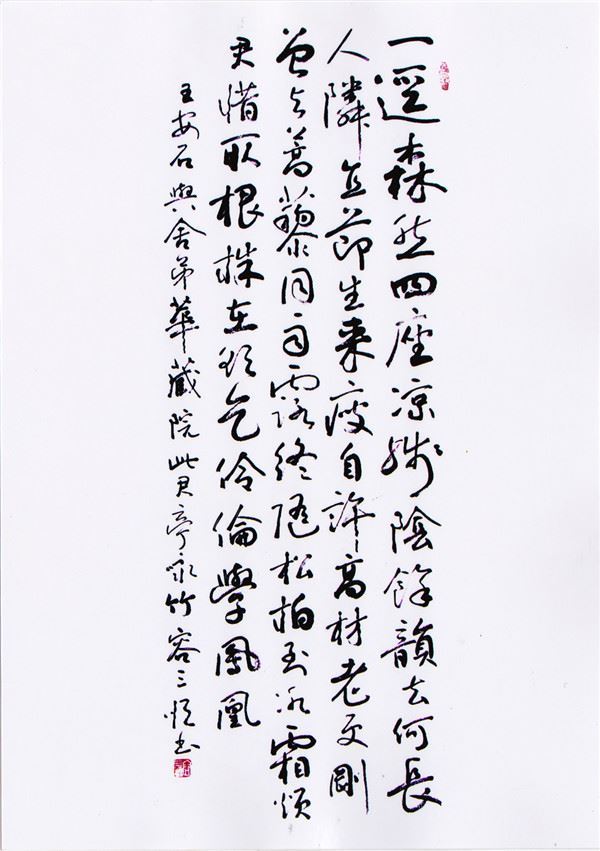 一逕森然四座凉殘陰餘韻去何長
人隣直節生來瘦自許高材老更剛
曾与蒿藜同雨露終隨松柏到冰霜煩
君惜取根株在欲乞伶倫學鳳凰
王安石與舍弟華藏院此君亭詠竹容三書